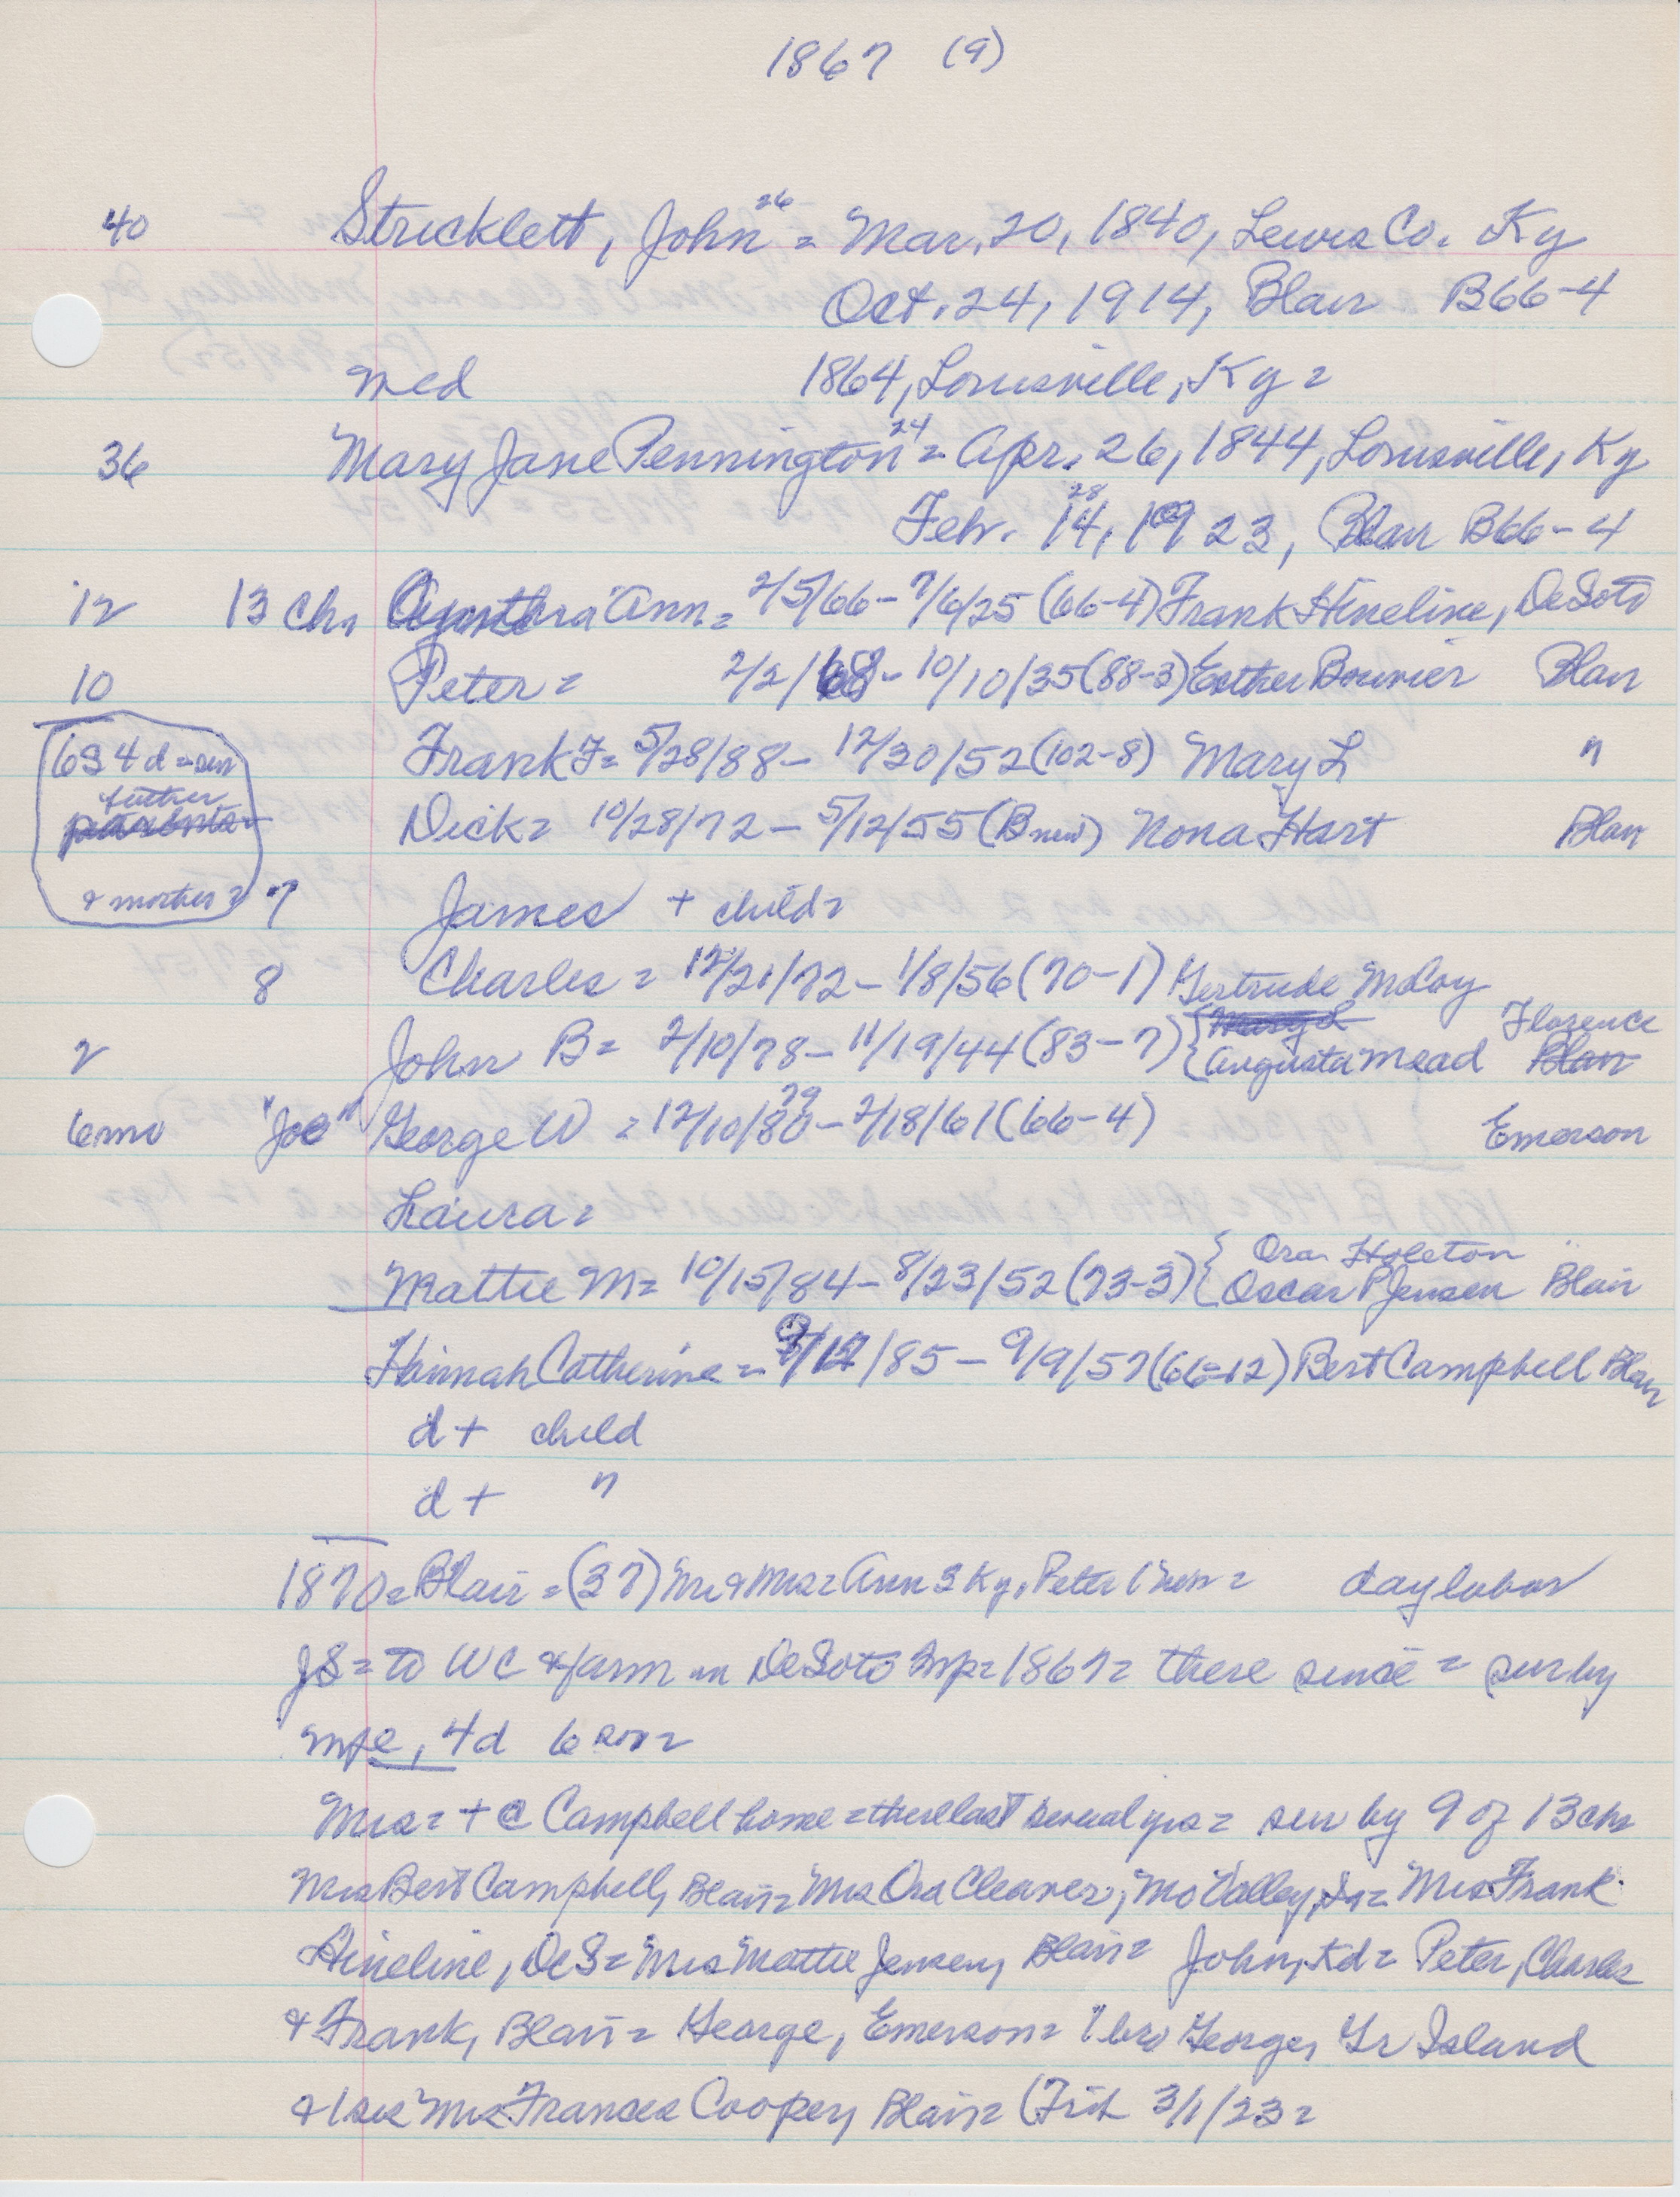 1867 (9)
40 Stricklett, John 26 = Mar. 20, 1840, Lewis Co. Ky
Oct. 24, 1914, Blair B66-4
med 1864, Louisville, Ky =
36 Mary Jane Pennington 24 = Apr. 26, 1844, Louisville, Ky
Feb. 14, 28 1923, Blair B66-4
12 13 Chs Ann = 2/5/66 - 7/6/25 (66-4) Frank Hineline, DeSoto
10 Peter = 2/2/68 - 10/10/35 (88-3) Esther Bouvier Blair
6S 4d = sur Frank F = 5/28/88 - 12/30/52 (102-8) Mary L "
father
parents Dick = 10/28/72 - 5/12/55 (B new) Nona Hart Blair
& mother = 7 James + child =
8 Charles = 12/21/72 - 1/8/56 (70-1) Gertrude McCoy
2 John B = 2/10/78 - 11/19/44 (83-7) { Mary L Florence
Augusta Mead Blair
6mo "Joe" George W = 12/10/80 79 - 2/18/61 (66-4) Emerson
Laura =
Mattie M = 10/15/84 - 8/23/52 (73-3) { Ora Holeton
Oscar P Jensen Blair
Hannah Catherine = 9/12/85 - 9/9/57 (66-12) Bert Campbell Blair
d + child
d + "
1870 = Blair = (37) Mr & Mrs = Ann 3 Ky, Peter 1 = day labor
JS = to WC & farm in DeSoto Twp = 1867 = there since = sur by
wfe, 4d 6 son =
Mrs = + @ Campbell home = there last several yrs = sur by 9 of 13 chs
Mrs Bert Campbell, Blair = Mrs Ora Cleaver, Mo Valley, Ia = Mrs Frank
Hineline, DeS = Mrs Mattie Jensen, Blair = John, Kd = Peter, Charles
& Frank, Blair = George, Emerson = 1 bro George, Gr Island
& 1 sis Mrs Frances Cooper, Blair = (Trib 3/1/23 =